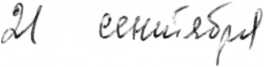 21 сентября